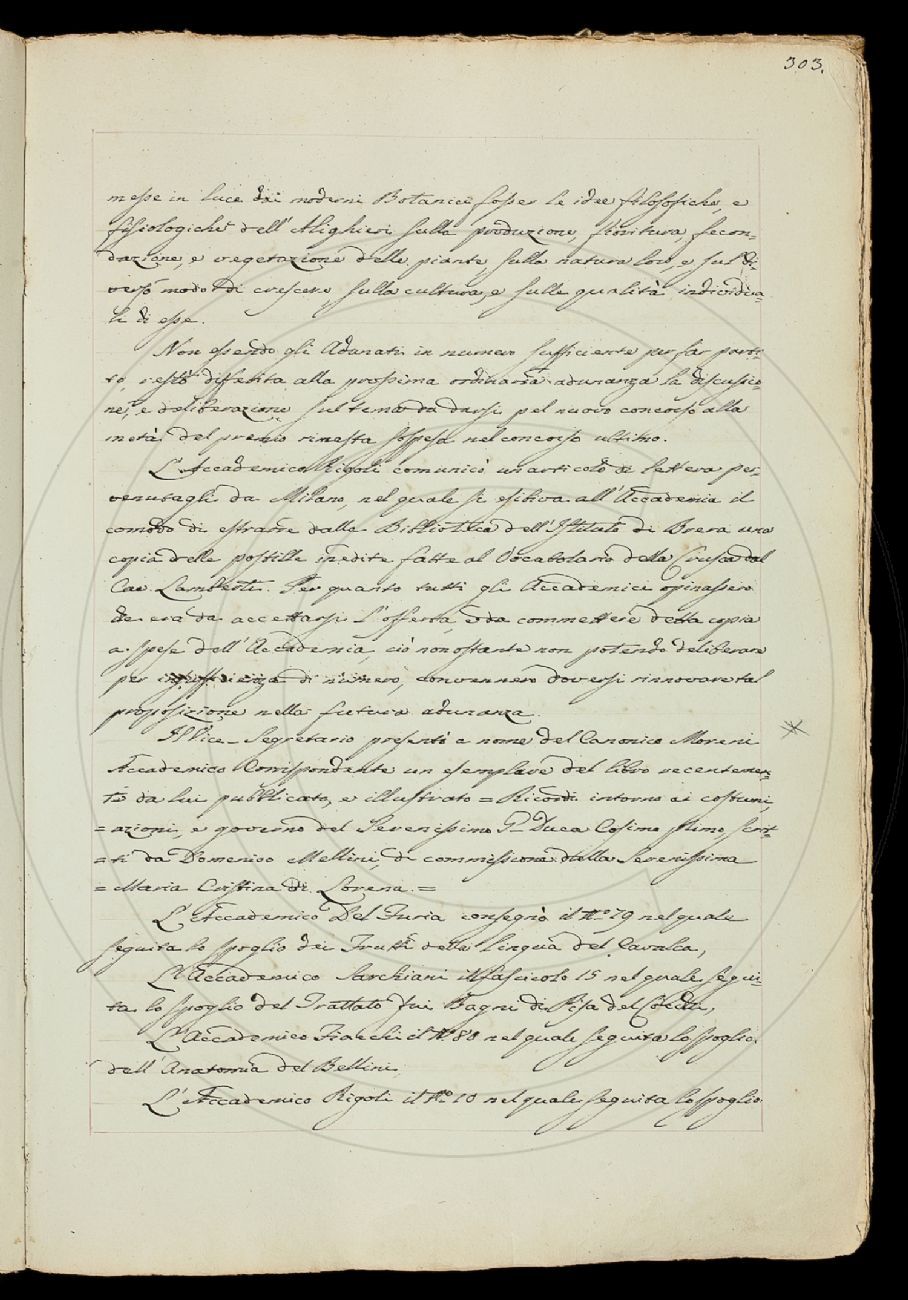 303.
messe in luce dai moderni Botanici fosser le idee filosofiche, e
fisiologiche dell'Alighieri sulla produzione, fioritura, fecon-
dazione, e vegetazione delle piante, sulla natura loro, e sul di-
verso modo di crescere, sulla cultura, e sulle qualità individua-
li di esse.
Non essendo gli Adunati in numero sufficiente per far parti-
to, restò differita alla prossima ordinaria adunanza la discussio-
ne, e deliberazione sul tema da darsi pel nuovo concorso alla
metà del premio rimasta sospesa nel concorso ultimo.
L'Accademico Rigoli comunicò un articolo di lettera per-
venutagli da Milano, nel quale si esibiva all'Accademia il
comodo di estrarre dalla Biblioteca dell'Istituto di Brera una
copia delle postille inedite fatte al Vocabolario della Crusca dal
Cav. Lamberti. Per quanto tutti gli Accademici opinassero
che era da accettarsi l'offerta, e da commettere detta copia
a spese dell'Accademia, ciò non ostante non potendo deliberare
per insufficienza di numero, convennero doversi rinnovare tal
proposizione nella futura adunanza.
Il Vice-Segretario presentò a nome del Canonico Moreni
Accademico Corrispondente un esemplare del libro recentemen-
te da lui pubblicato, e illustrato = Ricordi intorno ai costumi,
= azioni, e governo del Serenissimo G. Duca Cosimo primo, scrit-
= ti da Domenico Mellini, di commissione della Serenissima
= Maria Cristina di Lorena. =
L'Accademico Del Furia consegnò il N.º 79 nel quale
seguita lo spoglio dei Frutti della Lingua del Cavalca,
L'Accademico Sarchiani il fascicolo 15 nel quale segui-
ta lo spoglio del Trattato sui Bagni di Pisa del Cocchi,
L'Accademico Fiacchi il N.º 80 nel quale seguita lo spoglio
dell'Anatomia del Bellini,
L'Accademico Rigoli il N.º 10 nel quale seguita lo spoglio